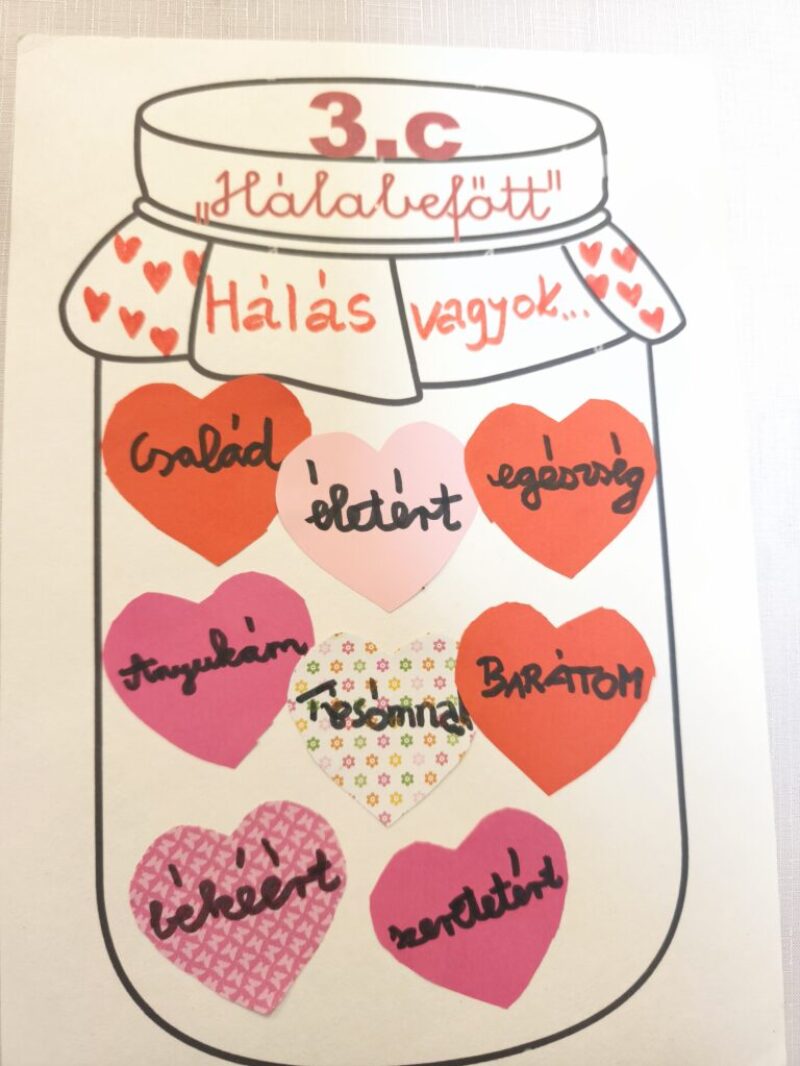 3.c
„Hálabefőtt"
Hálás vagyok...
Család
életért
egészség
Anyukám
Tesómnak
BARÁTOM
békéért
szeretetért